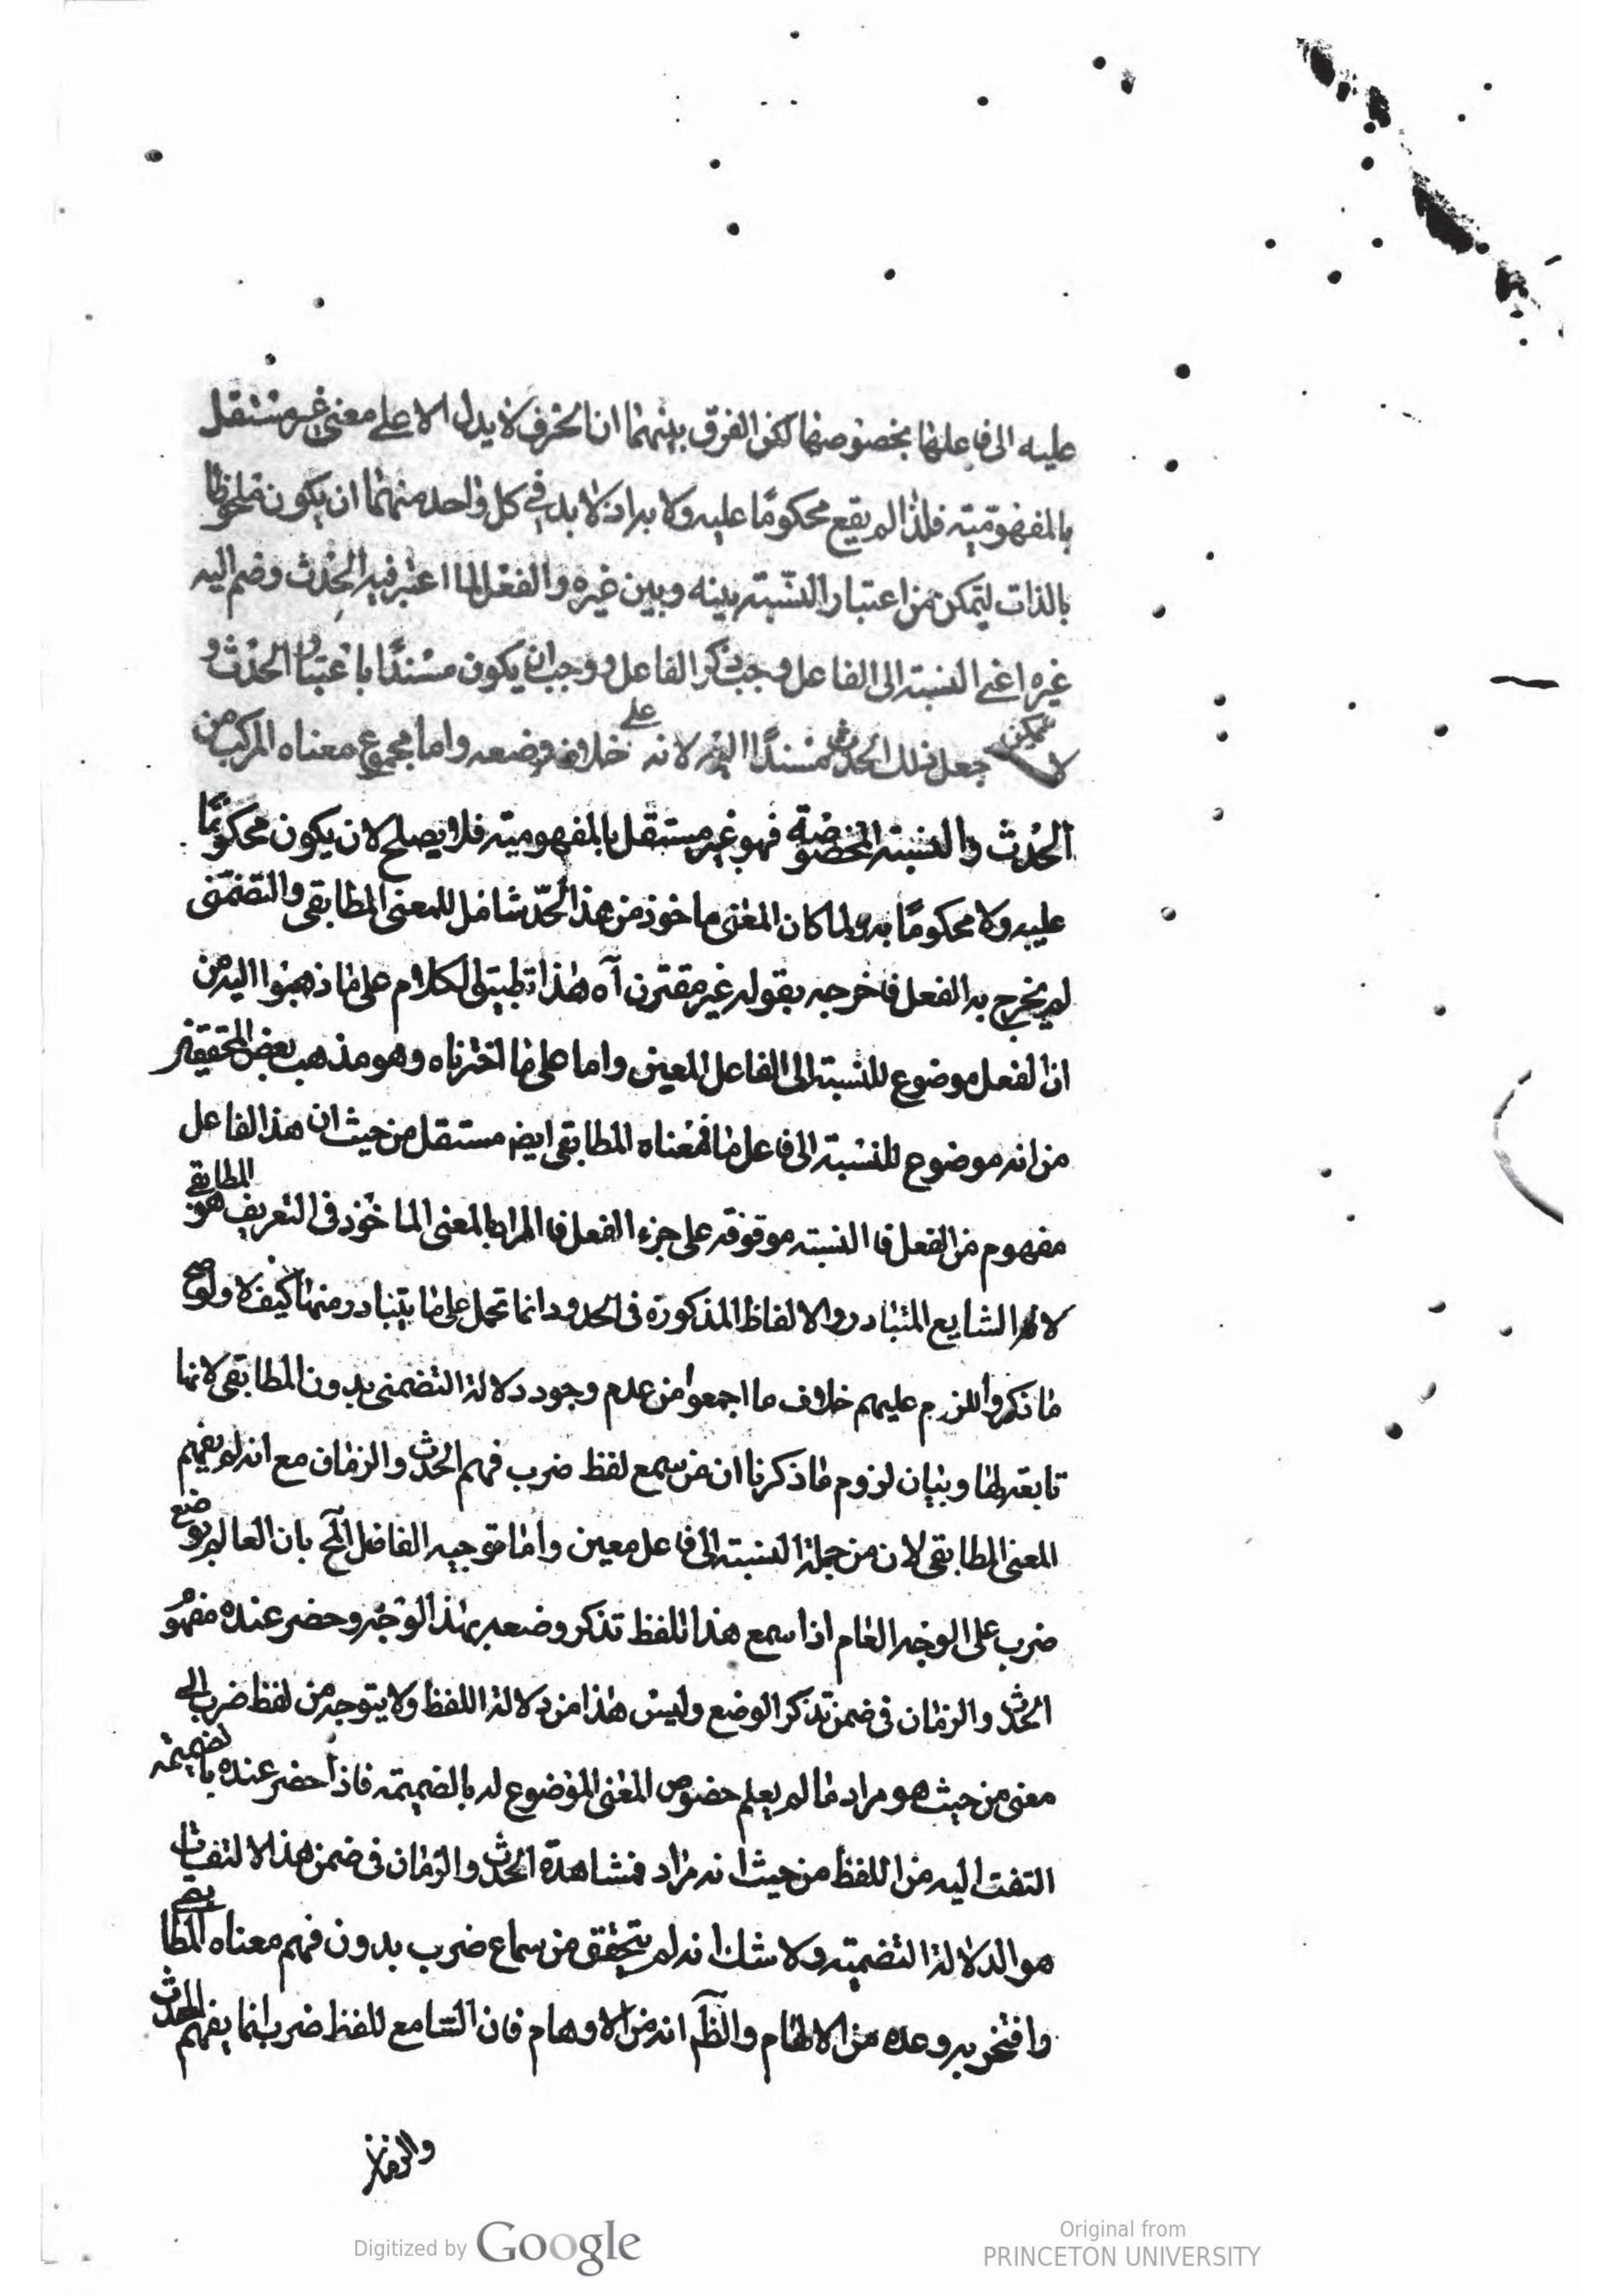 عليه الى فاعلها بخصوصها لكن الفرق بينهما ان الحرف لا يدل الا على معنى غير مستقل
بالمفهومية فلذا لم يقع محكومًا عليه ولا به اذ لا بد في كل واحد منهما ان يكون ملحوظا
بالذات ليتمكن من اعتبار النسبة بينه وبين غيره والفعل لما اعتبر فيه الحدث وضم اليه
غيره اعنى النسبة الى الفاعل وجب ذكر الفاعل ووجب ان يكون مسندًا باعتبار الحدث و
لا يمكن جعل ذلك الحدث مسندًا اليه لانه على خلاف وضعه واما مجموع معناه المركب من
الحدث والنسبة المخصوصة فهو غير مستقل بالمفهومية فلا يصلح لان يكون محكومًا
عليه ولا محكومًا به ولما كان المعنى ماخوذ من هذا الحدّ شامل للمعنى المطابقى والتضمنى
لم يخرج به الفعل فاخرجه بقوله غير مقترن آه هذا تطبيق الكلام على ما ذهبوا اليه من
ان الفعل موضوع للنسبة الى الفاعل المعين واما على ما اخترناه وهو مذهب بعض المحققين
من انه موضوع للنسبة الى فاعل ما فمعناه المطابقى ايضا مستقل من حيث ان هذا الفاعل
مفهوم من الفعل فا النسبة موقوفة على جزء الفعل فا المراد بالمعنى الماخوذ فى التعريف هو المطابقى
لانه الشايع المتبادر والالفاظ المذكورة فى الحدود انما تحمل على ما يتبادر منها كيف لا ولو صح
ما ذكروا للزم عليهم خلاف ما اجمعوا من عدم وجود دلالة التضمنى بدون المطابقى لانها
تابعة لها وبيان لزوم ما ذكرنا ان من سمع لفظ ضرب فهم الحدث والزمان مع انه لم يفهم
المعنى المطابقى لان من جملة النسبة الى فاعل معين واما توجيه الفاضل بان العالم بوضع
ضرب على الوجه العام اذا سمع هذا اللفظ تذكر وضعه بهذا الوجه وحضر عنده مفهو
الحدث والزمان فى ضمن تذكر الوضع وليس هذا من دلالة اللفظ ولا يتوجه من لفظ ضرب الى
معنى من حيث هو مراد ما لم يعلم خصوص المعنى الموضوع له بالضميمة فاذا حضر عنده بالضميمة
التفت اليه من اللفظ من حيث انه مراد فمشاهدة الحدث والزمان فى ضمن هذا الالتفات
هو الدلالة التضمنية ولا شك انه لم يتحقق من سماع ضرب بدون فهم معناه المطابقى
وافتخر به وعده من الالهام والظم انه من الاوهام فان السامع للفظ ضرب انما يفهم الحدث
والزمان
Digitized by Google
Original from
PRINCETON UNIVERSITY